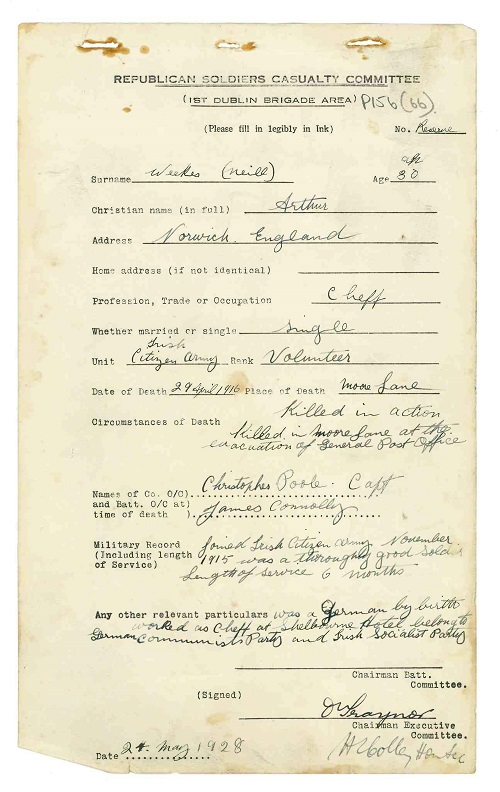 REPUBLICAN SOLDIERS CASUALTY COMMITTEE
(1ST DUBLIN BRIGADE AREA) P156(66)
(Please fill in legibly in Ink) No. Reserve
Surname Weekes (Neill) Age apx 30
Christian name (in full) Arthur
Address Norwich. England
Home address (if not identical)
Profession, Trade or Occupation Cheff
Whether married or single single
Irish
Unit Citizen Army Rank Volunteer
Date of Death 29 April 1916 Place of Death Moore Lane
Circumstances of Death Killed in action
Killed in Moore Lane at the
evacuation of General Post Office
Names of Co. O/C) Christopher Poole. Capt
and Batt. O/C at)
time of death ) James Connolly
Military Record Joined Irish Citizen Army November
(Including length 1915 was a thoroughly good Soldier
of Service) Length of service 6 months
Any other relevant particulars was a German by birth
worked as Cheff at Shelbourne Hotel belong to
German Communists Party and Irish Socialist Party
Chairman Batt.
Committee.
(Signed)
Traynor
Chairman Executive
Committee.
Date 24. May 1928 H Colley Hon Sec